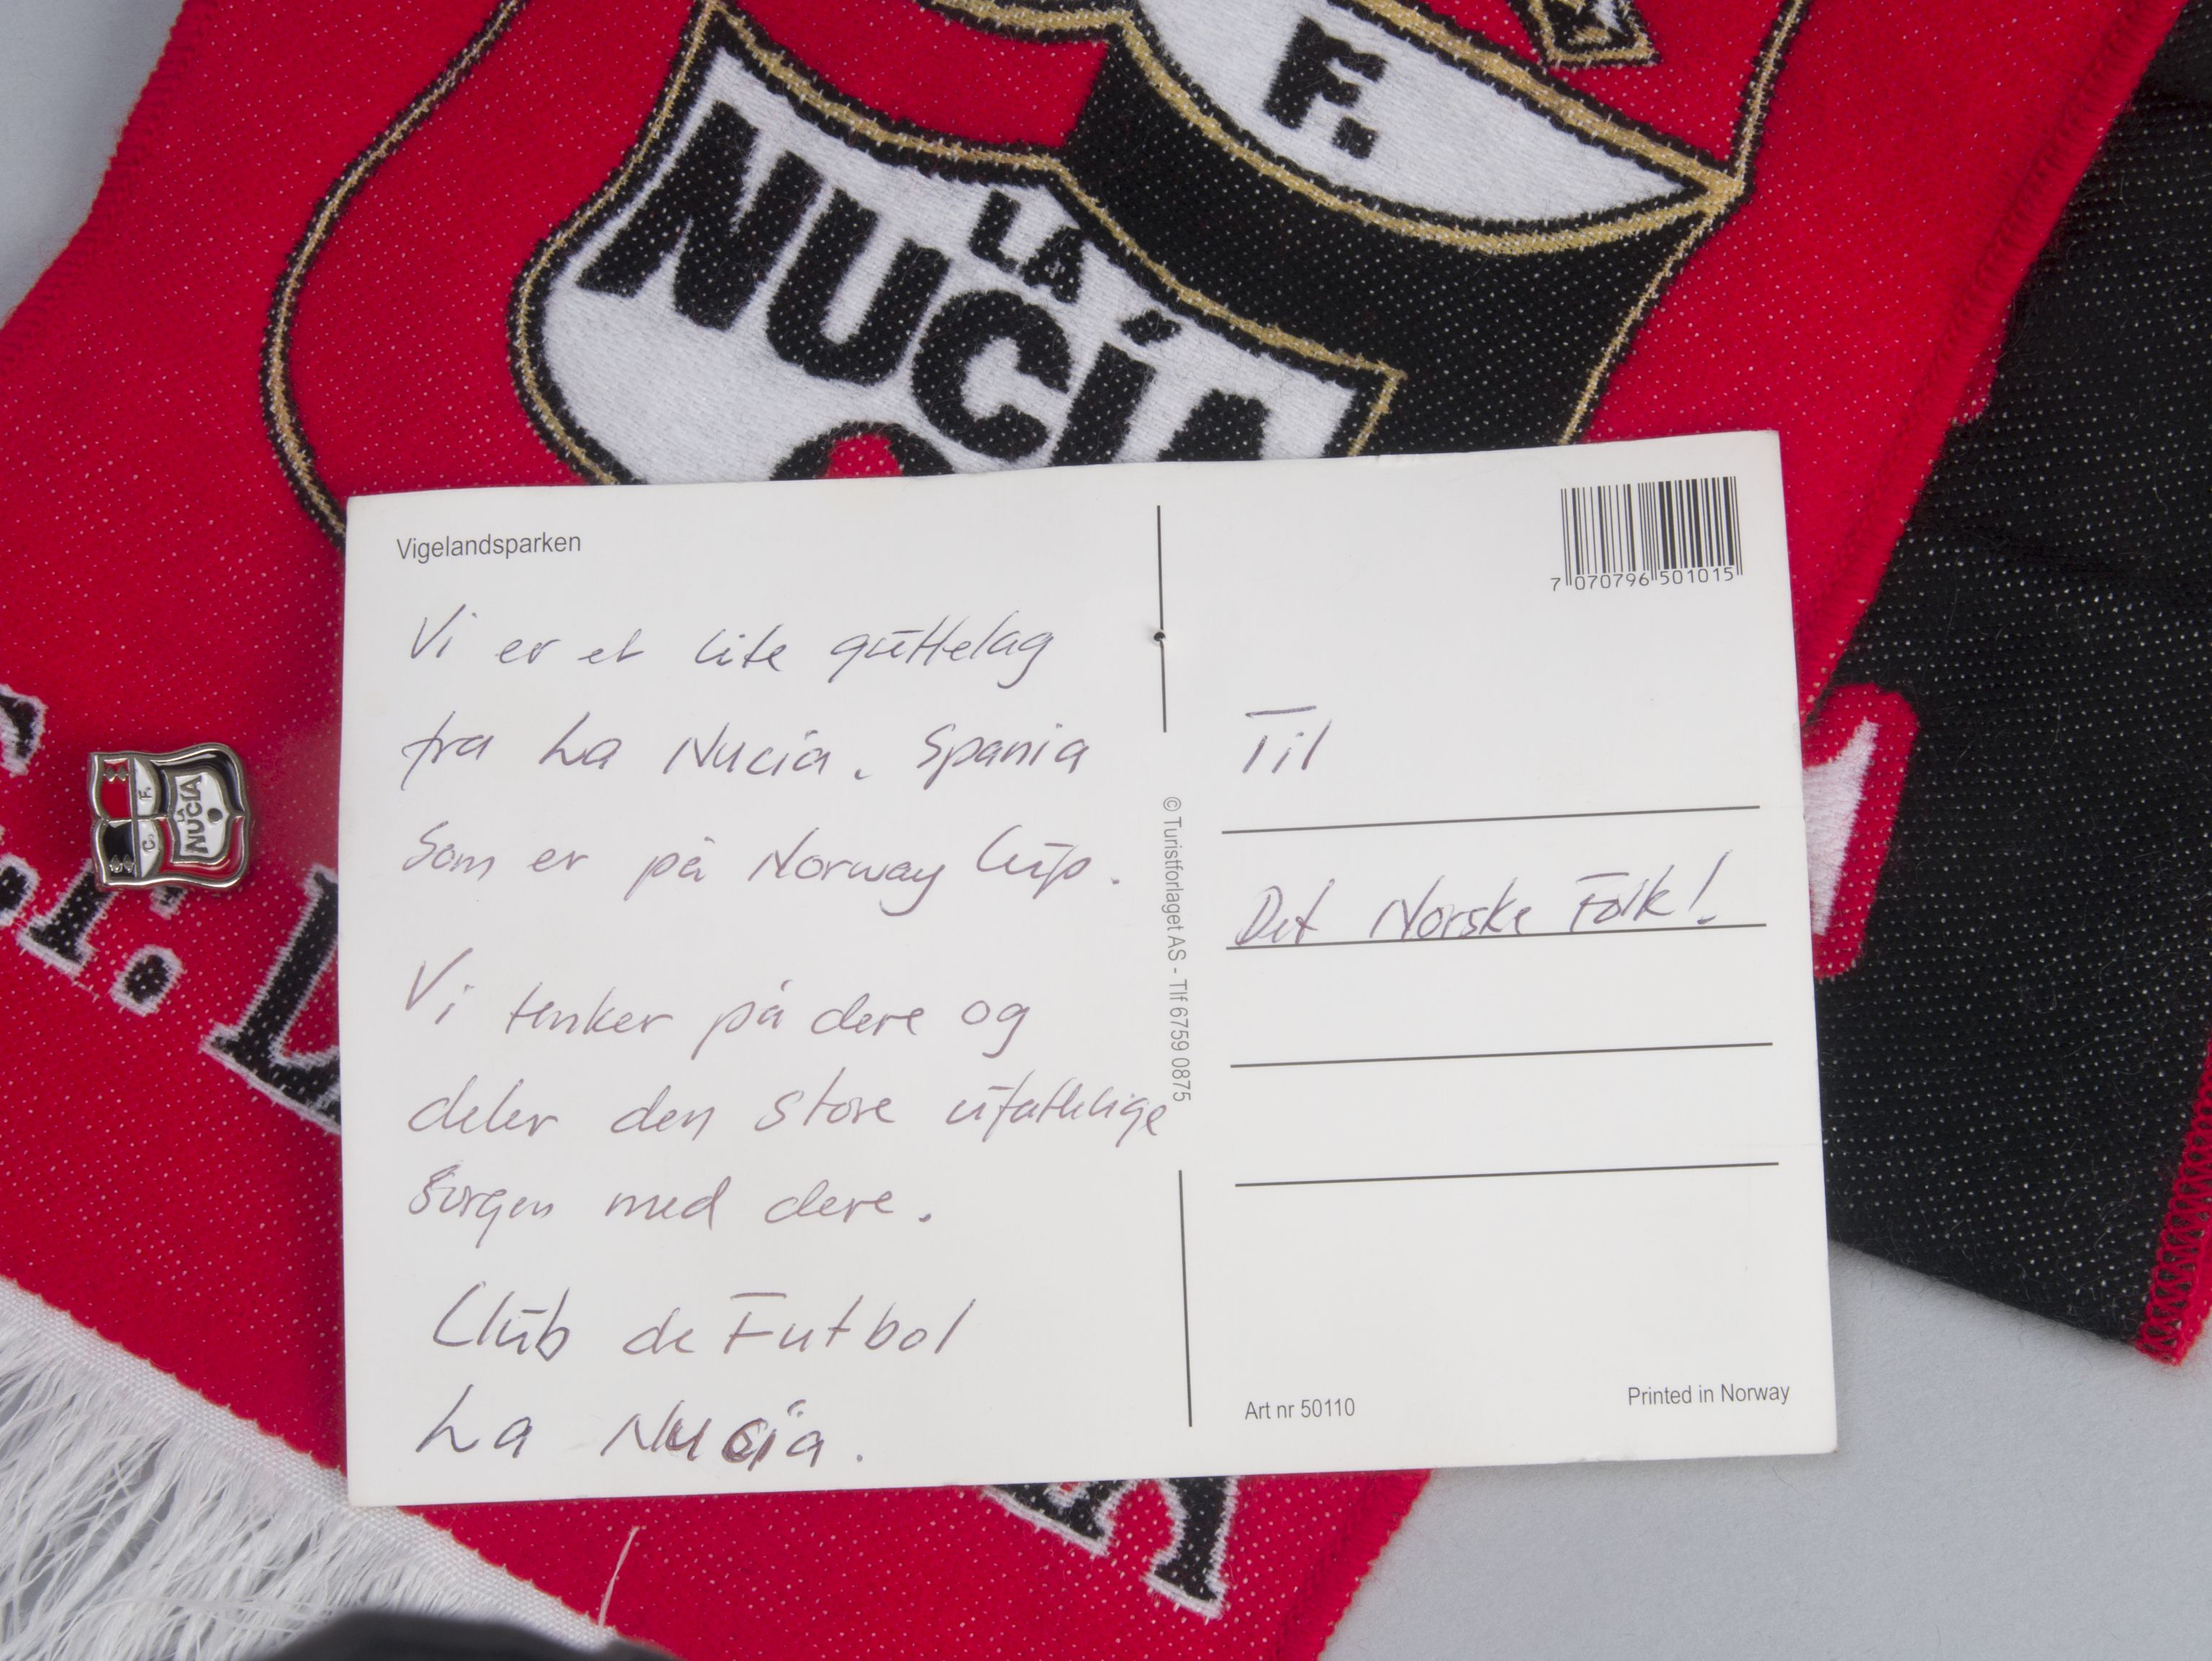 F.
LA
NUCÍA
Vigelandsparken
7 070796 501015
Vi er et lite guttelag
fra La Nucia. Spania
Som er på Norway Cup.
Vi tenker på dere og
deler den store ufattelige
Sorgen med dere.
Club de Futbol
La Nucia.
© Turistforlaget AS - Tlf 6759 0875
Til
Det Norske Folk!
Art nr 50110
Printed in Norway
C. F.
LA
NUCIA